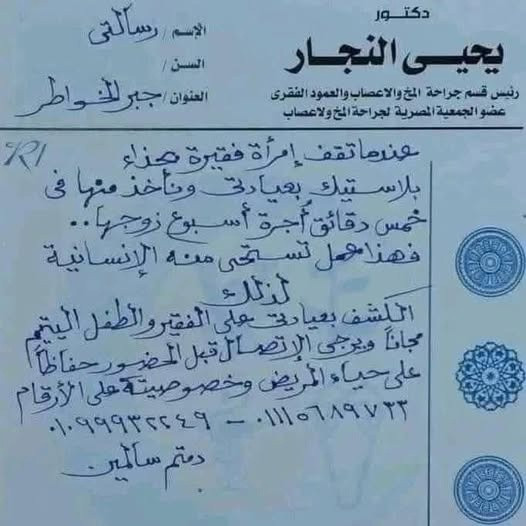 دكتور
يحيى النجار
رئيس قسم جراحة المخ والاعصاب والعمود الفقرى
عضو الجمعية المصرية لجراحة المخ ولاعصاب
الإسم / رسالتى
السن /
العنوان / جبر الخواطر
R/
عندما تقف إمرأة فقيرة بحذاء
بلاستيك بعيادتى ونأخذ منها فى
خمس دقائق أجرة أسبوع زوجها..
فهذا عمل تستحى منه الإنسانية
لذلك
الكشف بعيادتى على الفقير والطفل اليتيم
مجاناً ويرجى الإتصال قبل الحضور حفاظاً
على حياء المريض وخصوصيته على الأرقام
٠١١١٥٦٨٩٧٣٣ - ٠١٠٩٩٩٣٢٢٤٩
دمتم سالمين